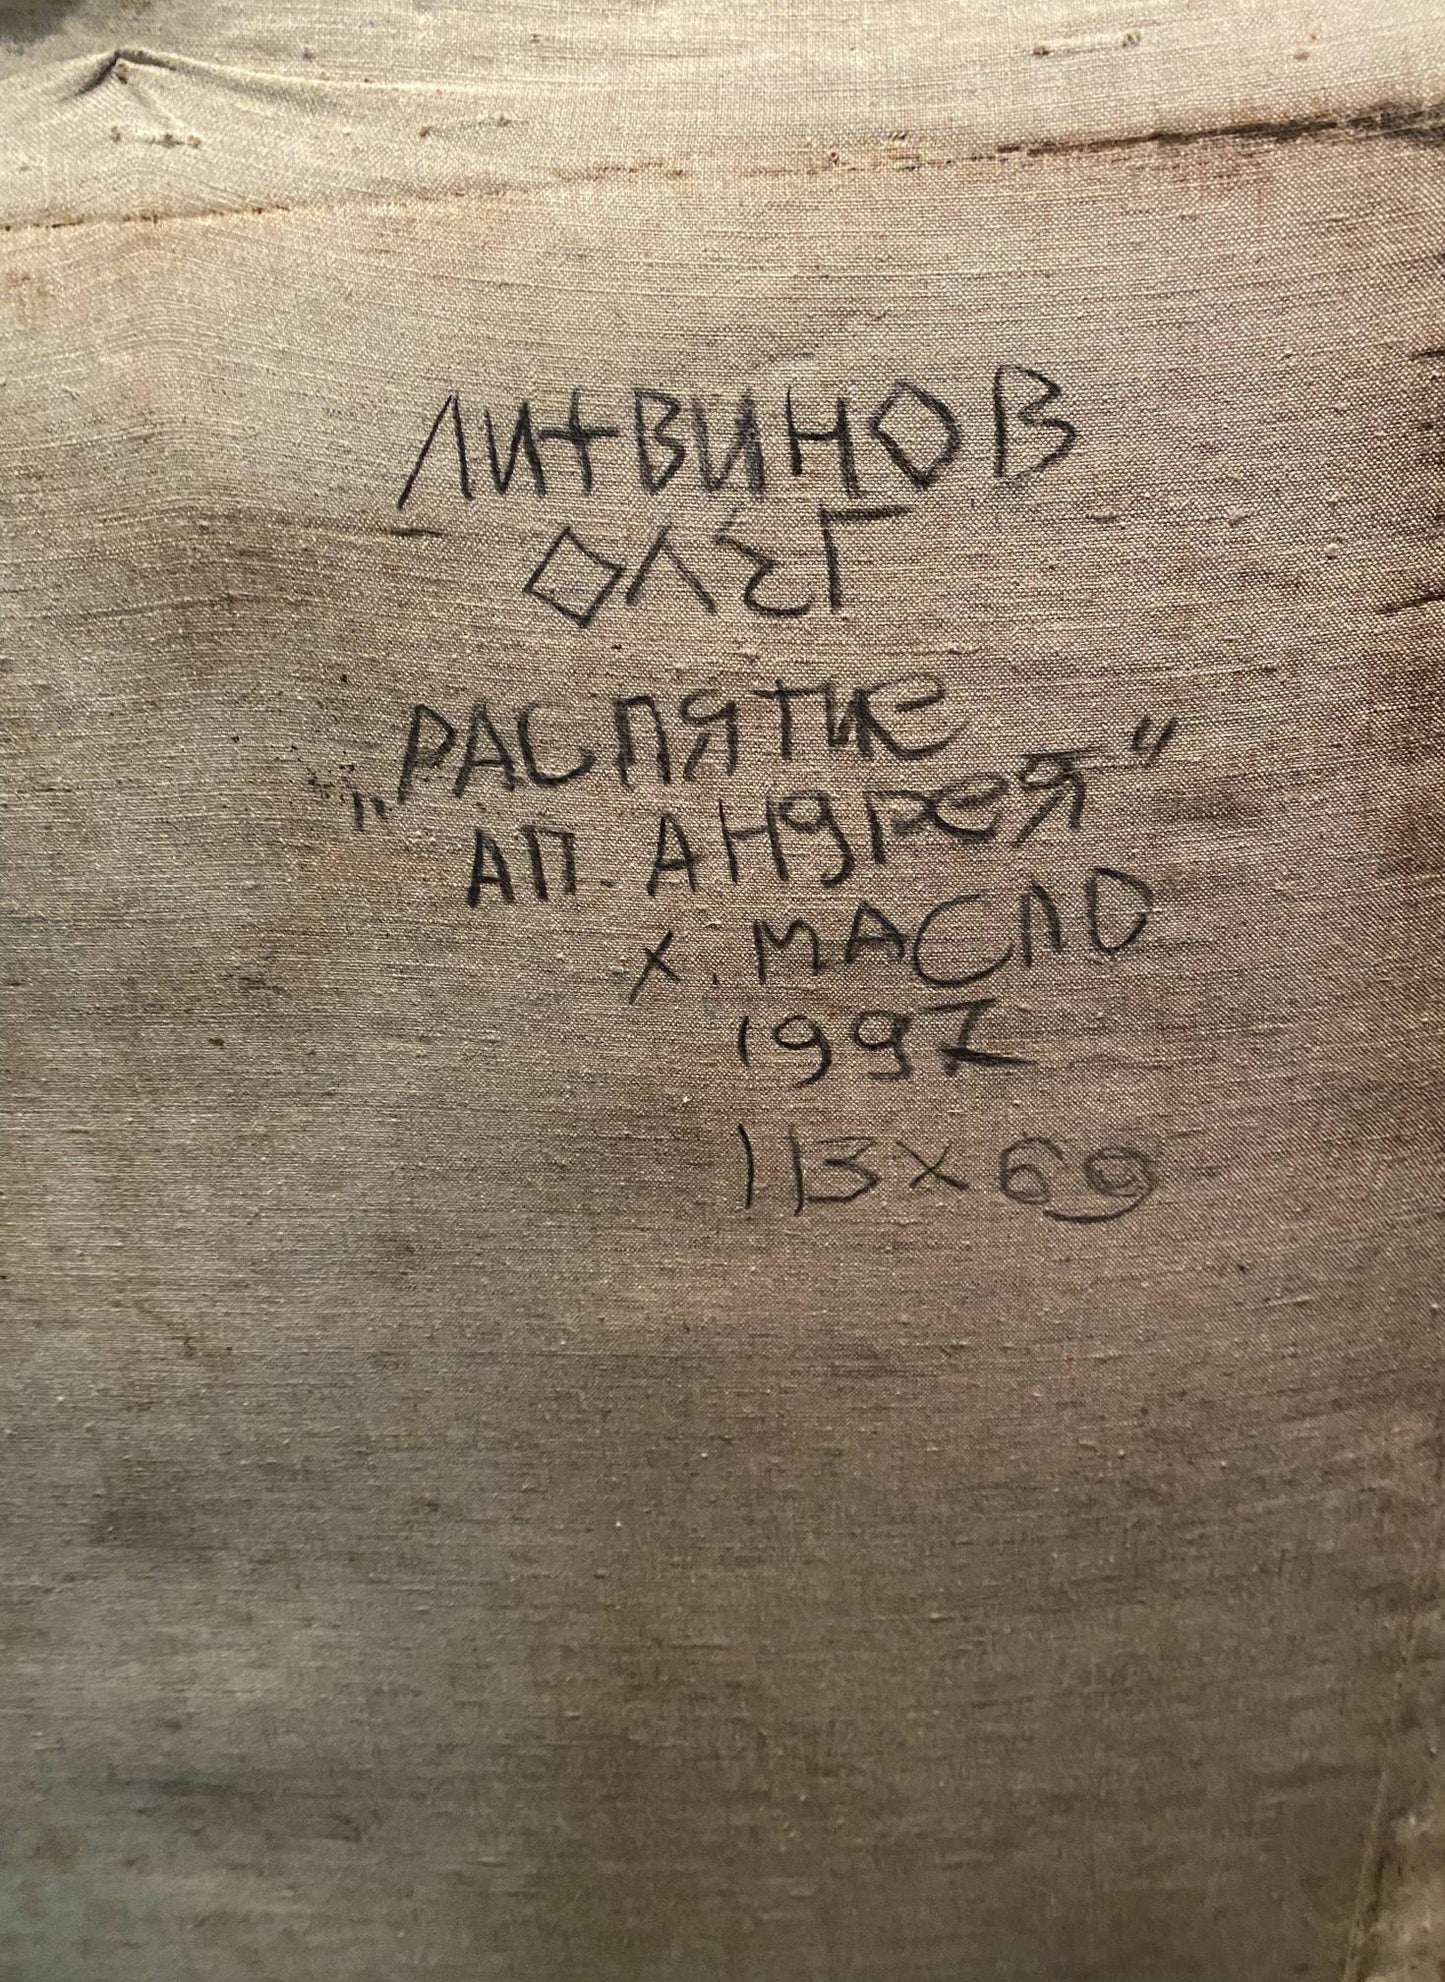 ЛИТВИНОВ
ОЛЕГ
„РАСПЯТИЕ
АП. АНДРЕЯ"
х. МАСЛО
1997
113 х 69